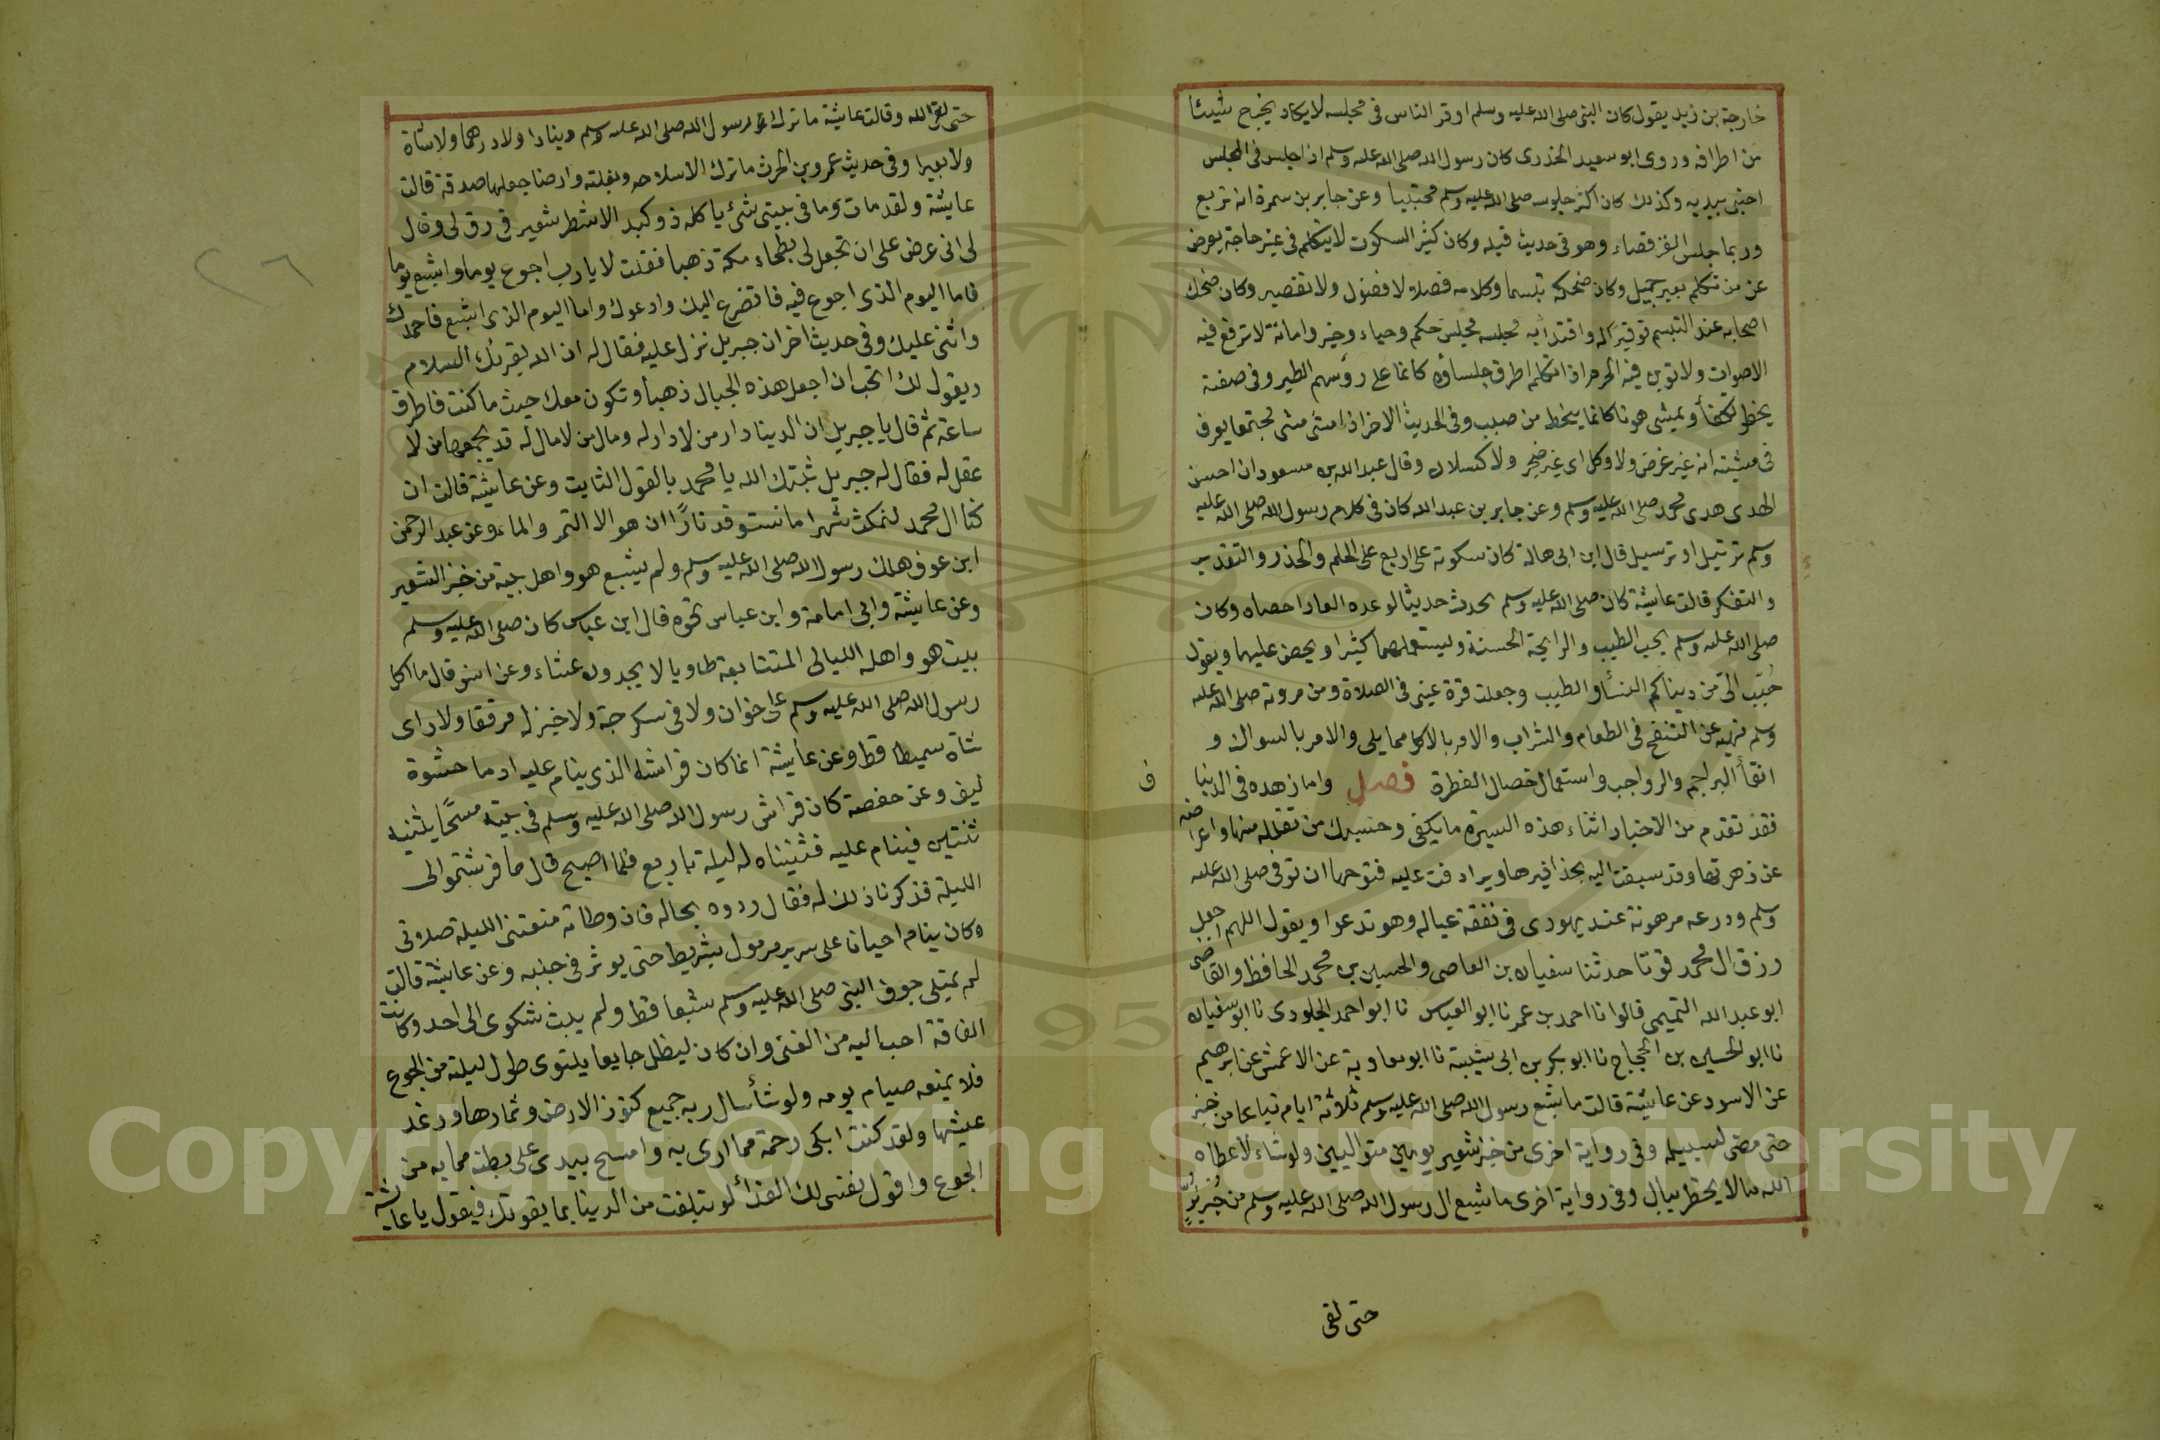 خارجة بن زيد يقول كان النبي صلى الله عليه وسلم اوقر الناس في مجلسه لا يكاد يخرج شيئا
من اطرافه وروى ابو سعيد الخدرى كان رسول الله صلى الله عليه وسلم اذا جلس في المجلس
احتبى بيديه وكذلك كان اكثر جلوسه صلى الله عليه وسلم محتبيا وعن جابر بن سمرة انه تربع
وربما جلس القرفصاء وهو في حديث قيله وكان كثير السكوت لا يتكلم في غير حاجة يعرض
عن من تكلم بغير جميل وكان ضحكه تبسما وكلامه فصلا لا فضول ولا تقصير وكان ضحك
اصحابه عنده التبسم توقيرا له واقتدأ به مجلسه مجلس حكم وحياء وخير وامانة لا ترفع فيه
الاصوات ولا توبن فيه الحرم اذا تكلم اطرق جلساؤه كانما على رؤسهم الطير وفى صفته
يخطو تكفأ ويمشي هونا كانما ينحط من صبب وفى الحديث الاخر اذا مشى مشى مجتمعا يعرف
في مشيته انه غير غرض ولا وكل اى غير ضجر ولا كسلان وقال عبد الله بن مسعود ان احسن
الهدى هدى محمد صلى الله عليه وسلم وعن جابر بن عبد الله كان في كلام رسول الله صلى الله عليه
وسلم ترتيل او ترسيل قال ابن ابى هالة كان سكوته على اربع على الحلم والحذر والتقدير
والتفكر قالت عايشة كان صلى الله عليه وسلم يحدث حديثا لو عده العادا حصاه وكان
صلى الله عليه وسلم يحب الطيب والرايحة الحسنة ويستعملهما كثيرا ويحض عليهما ويقول
حُبّب الىّ من ديناكم النسأ والطيب وجعلت قرة عينى فى الصلاة ومن مروته صلى الله عليه
وسلم نهيه عن النفخ فى الطعام والشراب والامر بالاكل مما يلى والامر بالسواك و
انقأ البراجم والرواجب واستعمال خصال الفطرة فصل واما زهده فى الدنيا
فقد تقدم من الاخبار اثناء هذه السيرة ما يكفى وحسبك من تقلله منها واعراضه
عن زهرتها وقد سيقت اليه بحذافيرها وترادفت عليه فتوحها ان توفى صلى الله عليه
وسلم ودرعه مرهونة عند يهودى فى نفقة عياله وهو تدعوا ويقول اللهم اجعل
رزق ال محمد قوتا حدثنا سفيان بن العاصى والحسين بن محمد الحافظ والقاضى
ابو عبد الله التميمى قالوا نا احمد بن عمر نا ابو العباس نا ابو احمد الجلودى نا ابو سفيان
نا ابو الحسين بن الحجاج نا ابو بكر بن ابى شيبة نا ابو معاوية عن الاعمش عن ابرهيم
عن الاسود عن عائشة قالت ما شبع رسول الله صلى الله عليه وسلم ثلاثة ايام تباعا من خبز
حتى مضى لسبيله وفى رواية اخرى من خبز شعير يومين متواليين ولو شاء لاعطاه
الله ما لا يخطر ببال وفى رواية اخرى ما شبع ال رسول الله صلى الله عليه وسلم من خُبز بُرّ
حتى لقى
ف
حتى لقى الله وقالت عايشة ما ترك رسول الله صلى الله عليه وسلم دينارا ولا درهما ولا شاة
ولا بعيرا وفى حديث عمرو بن الحرث ما ترك الا سلاحه وبغلته وارضا جعلها صدقة قالت
عايشة ولقد مات وما فى بيتى شئ ياكله ذو كبد الا شطر شعير فى رف لى وقال
لى انى عرض على ان تجعل لى بطحاء مكة ذهبا فقلت لا يارب اجوع يوما واشبع يوما
فاما اليوم الذى اجوع فيه فاتضرع اليك وادعوك واما اليوم الذى اشبع فاحمدك
واثنى عليك وفى حديث اخر ان جبريل نزل عليه فقال له ان الله يقرئك السلام
ويقول لك اتحب ان اجعل هذه الجبال ذهبا وتكون معك حيث ما كنت فاطرق
ساعة ثم قال يا جبريل ان الدينا دار من لا دار له ومال من لا مال له قد يجمعها من لا
عقل له فقال له جبريل ثبتك الله يا محمد بالقول الثابت وعن عايشة قالت ان
كنا ال محمد لنمكث شهرا ما نستوقد نارًا ان هو الا التمر والماء وعن عبد الرحمن
ابن عوف هلك رسول الله صلى الله عليه وسلم ولم يشبع هو واهل بيته من خبز الشعير
وعن عايشة وابى امامة وابن عباس نحوه قال ابن عباس كان صلى الله عليه وسلم
يبيت هو واهله الليالى المتتابعة طاويا لا يجدون عشاء وعن انس قال ما اكل
رسول الله صلى الله عليه وسلم على خوان ولا فى سكرجة ولا خبز له مرققا ولا راى
شاة سميطا قط وعن عايشة انما كان فراشه الذى ينام عليه ادما حشوة
ليف وعن حفصة كان فراش رسول الله صلى الله عليه وسلم فى بيته مسحًا يثنيه
ثنتين فينام عليه فثنيناه له ليلة باربع فلما اصبح قال ما فرشتموا لى
الليلة فذكرنا ذلك له فقال ردوه بحاله فان وطاته منعتنى الليلة صلاتى
وكان ينام احيانا على سرير مرمول بشريط حتى يوثر فى جنبه وعن عايشة قالت
لم يمتلى جوف النبى صلى الله عليه وسلم شبعا قط ولم يبث شكوى الى احد وكانت
الفاقة احب اليه من الغنى وان كان ليظل جايعا يلتوى طول ليلته من الجوع
فلا يمنعه صيام يومه ولو شأ سال ربه جميع كنوز الارض وثمارها ورغد
عيشها ولقد كنت ابكى رحمة مما ارى به وامسح بيدى على بطنه مما به من
الجوع واقول نفسى لك الفدأ لو تبلغت من الدينا بما يقوتك فيقول يا عايشة
٢٦
Copyright © King Saud University
1957